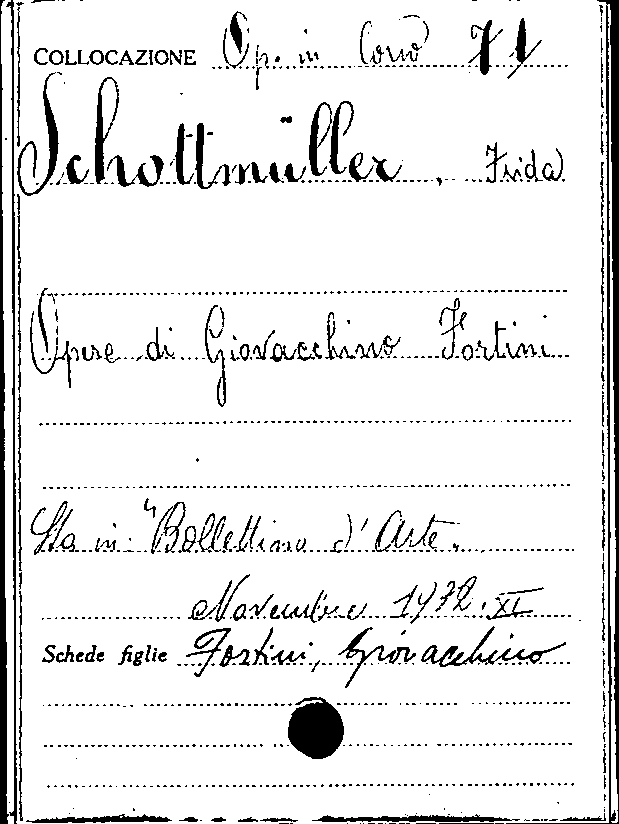 COLLOCAZIONE Op. in Corso 71
Schottmüller, Frida
Opere di Giovacchino Fortini
Sta in: "Bollettino d'Arte"
Novembre 1932.XI
Schede figlie Fortini, Giovacchino